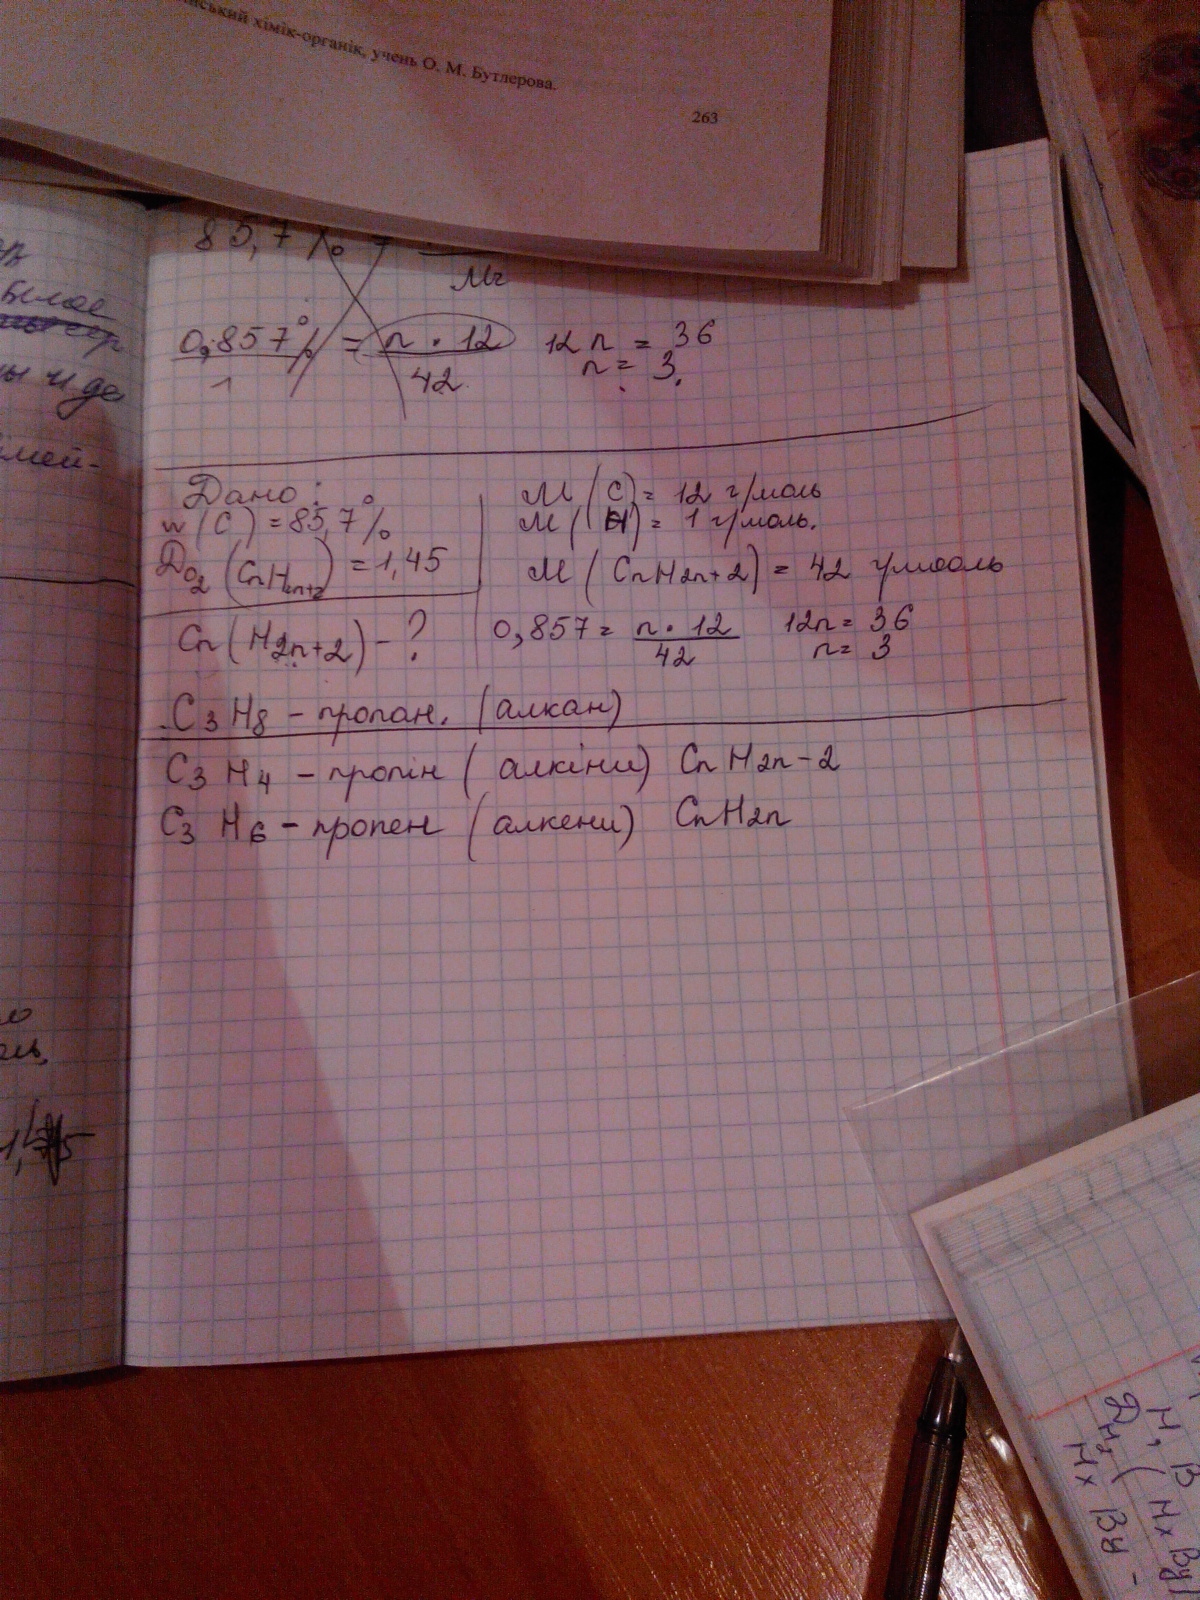 ський хімік-органік, учень О. М. Бутлерова.
263
85,7% =
Mr
0,857% = n · 12
1
42
12n = 36
n = 3.
Дано:
w(C) = 85,7%
DO2 (CnH2n+2) = 1,45
Cn(H2n+2) - ?
M(C) = 12 г/моль
M(H) = 1 г/моль.
M(CnH2n+2) = 42 г/мооль
0,857 = n · 12
42
12n = 36
n = 3
C3H8 - пропан. (алкан)
C3H4 - пропін (алкіни) CnH2n-2
C3H6 - пропен (алкени) CnH2n